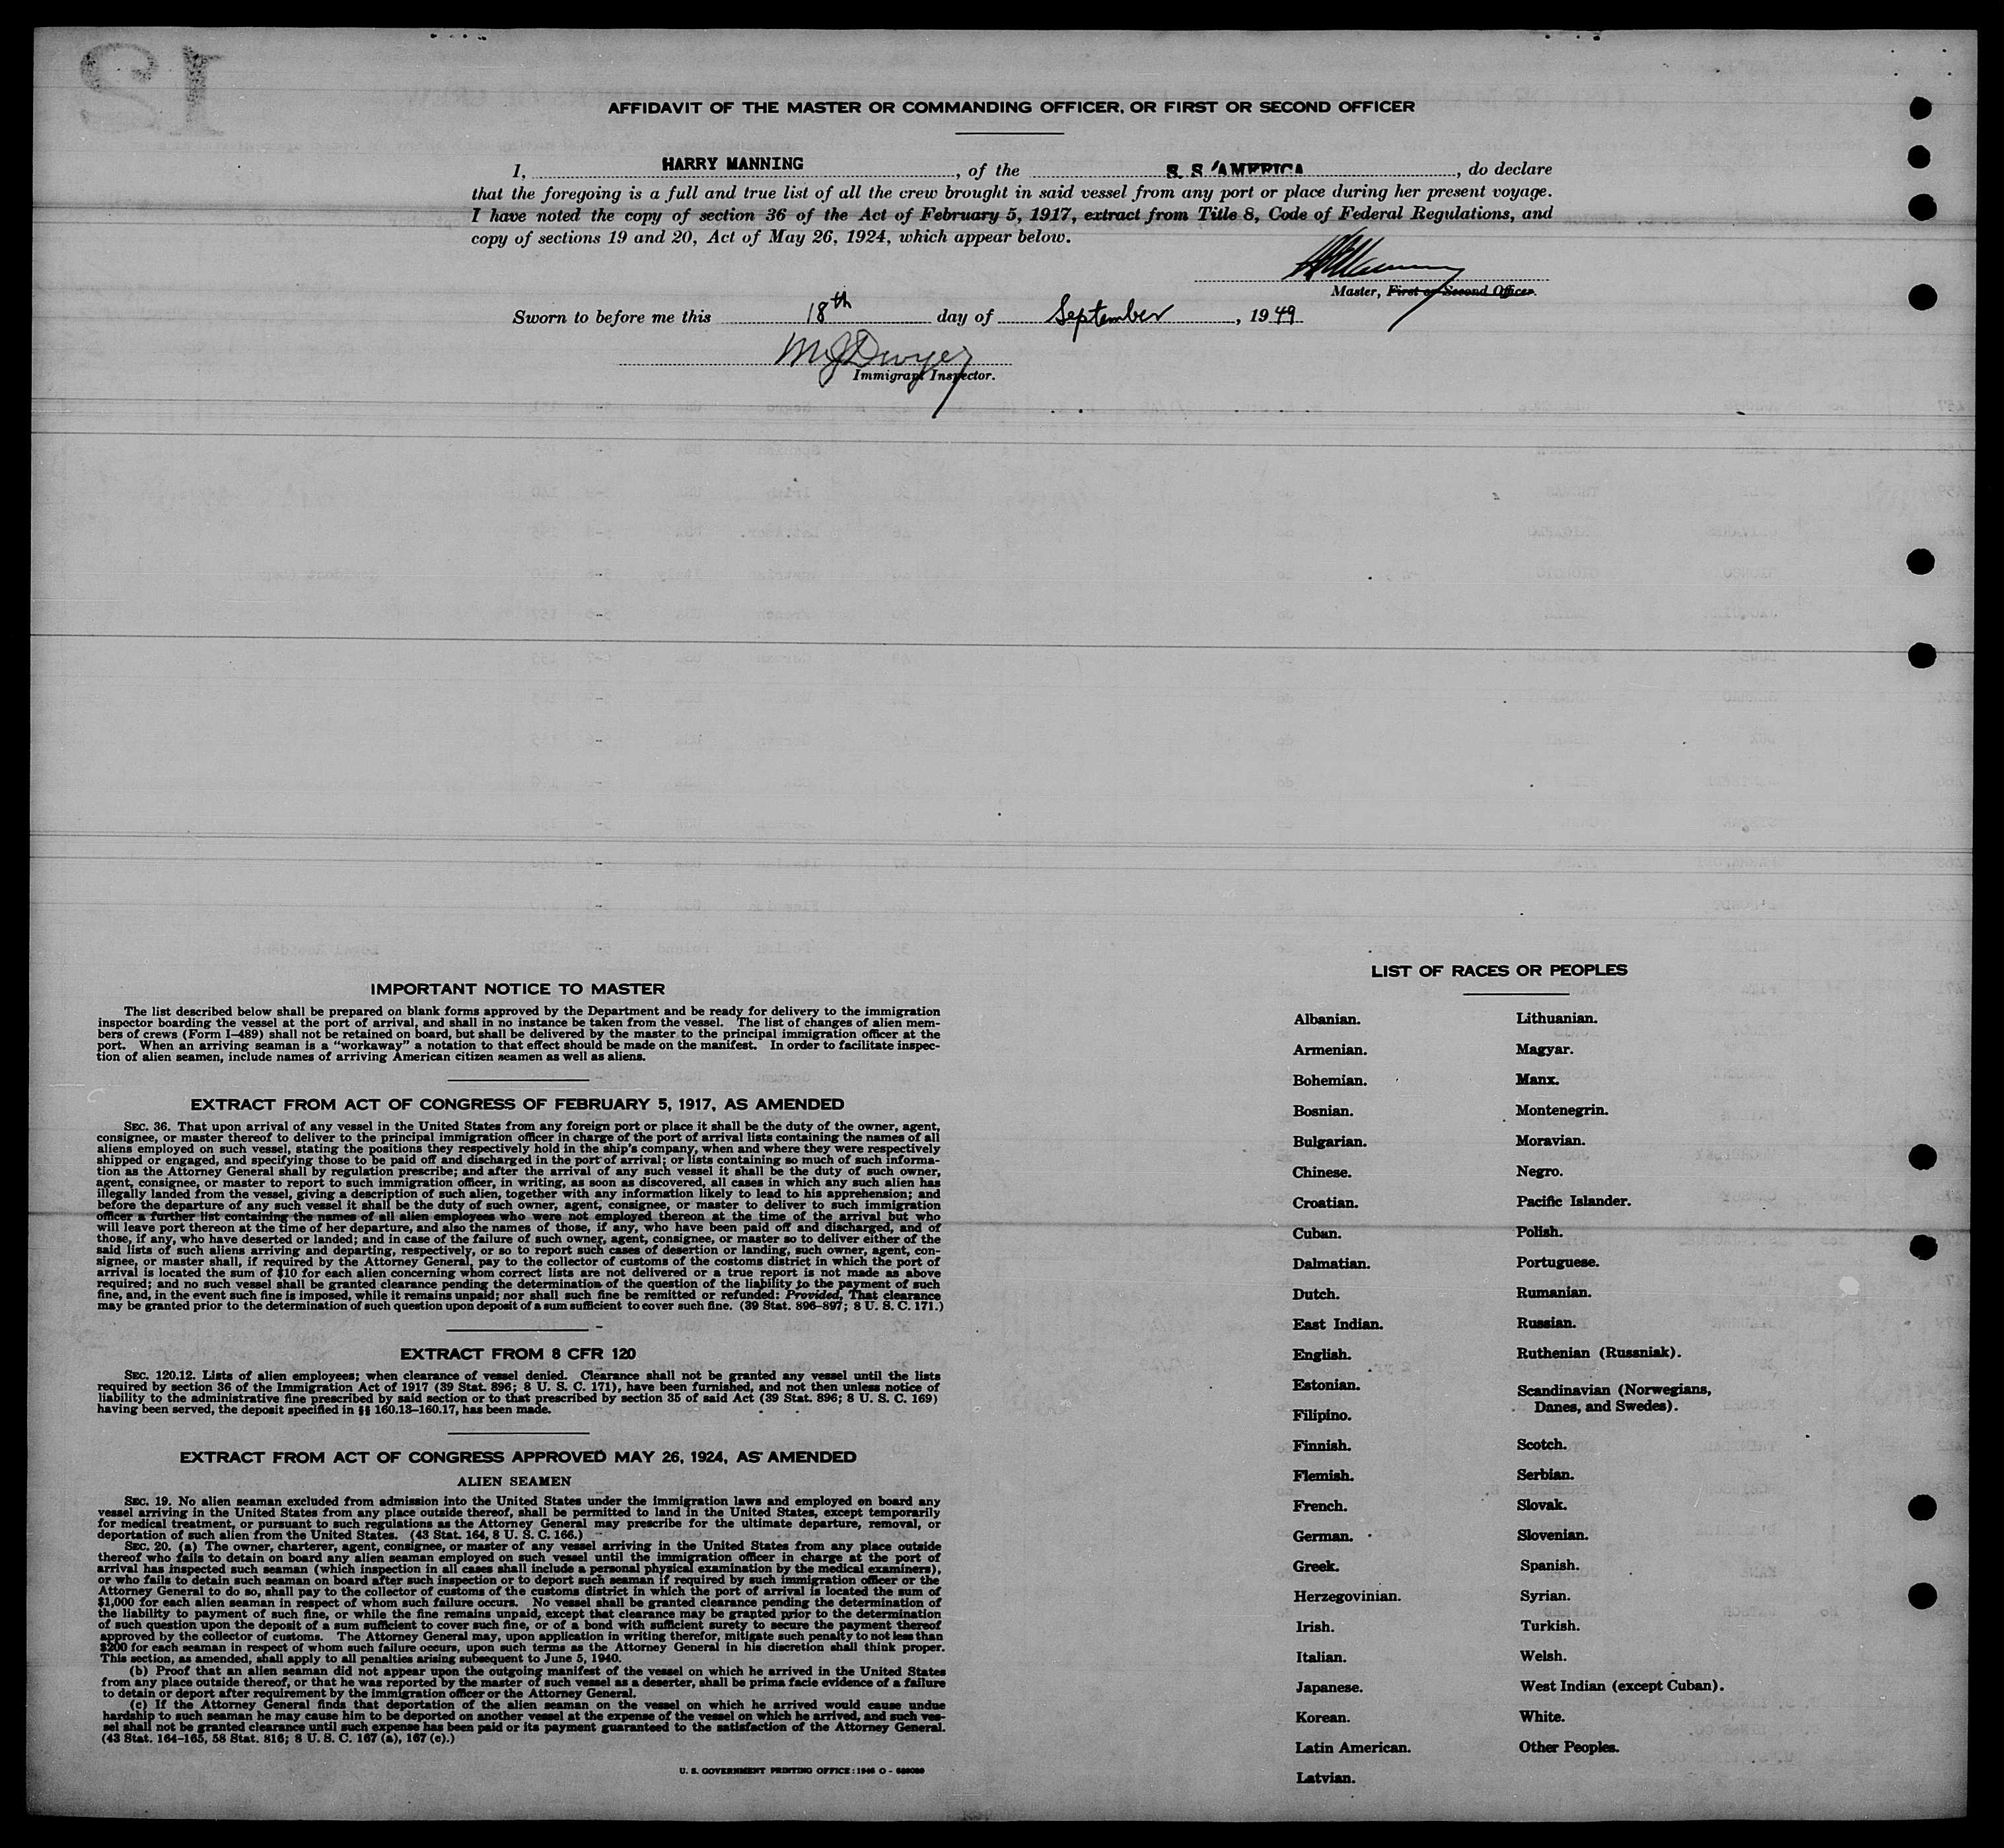 AFFIDAVIT OF THE MASTER OR COMMANDING OFFICER, OR FIRST OR SECOND OFFICER
I, HARRY MANNING, of the S. S. AMERICA, do declare
that the foregoing is a full and true list of all the crew brought in said vessel from any port or place during her present voyage.
I have noted the copy of section 36 of the Act of February 5, 1917, extract from Title 8, Code of Federal Regulations, and
copy of sections 19 and 20, Act of May 26, 1924, which appear below.
Master, First or Second Officer.
Sworn to before me this 18th day of September, 1949
M J Dwyer
Immigrant Inspector.
IMPORTANT NOTICE TO MASTER
The list described below shall be prepared on blank forms approved by the Department and be ready for delivery to the immigration
inspector boarding the vessel at the port of arrival, and shall in no instance be taken from the vessel. The list of changes of alien mem-
bers of crews (Form I-489) shall not be retained on board, but shall be delivered by the master to the principal immigration officer at the
port. When an arriving seaman is a "workaway" a notation to that effect should be made on the manifest. In order to facilitate inspec-
tion of alien seamen, include names of arriving American citizen seamen as well as aliens.
EXTRACT FROM ACT OF CONGRESS OF FEBRUARY 5, 1917, AS AMENDED
SEC. 36. That upon arrival of any vessel in the United States from any foreign port or place it shall be the duty of the owner, agent,
consignee, or master thereof to deliver to the principal immigration officer in charge of the port of arrival lists containing the names of all
aliens employed on such vessel, stating the positions they respectively hold in the ship's company, when and where they were respectively
shipped or engaged, and specifying those to be paid off and discharged in the port of arrival; or lists containing so much of such informa-
tion as the Attorney General shall by regulation prescribe; and after the arrival of any such vessel it shall be the duty of such owner,
agent, consignee, or master to report to such immigration officer, in writing, as soon as discovered, all cases in which any such alien has
illegally landed from the vessel, giving a description of such alien, together with any information likely to lead to his apprehension; and
before the departure of any such vessel it shall be the duty of such owner, agent, consignee, or master to deliver to such immigration
officer a further list containing the names of all alien employees who were not employed thereon at the time of the arrival but who
will leave port thereon at the time of her departure, and also the names of those, if any, who have been paid off and discharged, and of
those, if any, who have deserted or landed; and in case of the failure of such owner, agent, consignee, or master so to deliver either of the
said lists of such aliens arriving and departing, respectively, or so to report such cases of desertion or landing, such owner, agent, con-
signee, or master shall, if required by the Attorney General, pay to the collector of customs of the costoms district in which the port of
arrival is located the sum of $10 for each alien concerning whom correct lists are not delivered or a true report is not made as above
required; and no such vessel shall be granted clearance pending the determination of the question of the liability to the payment of such
fine, and, in the event such fine is imposed, while it remains unpaid; nor shall such fine be remitted or refunded: Provided, That clearance
may be granted prior to the determination of such question upon deposit of a sum sufficient to cover such fine. (39 Stat. 896-897; 8 U. S. C. 171.)
EXTRACT FROM 8 CFR 120
SEC. 120.12. Lists of alien employees; when clearance of vessel denied. Clearance shall not be granted any vessel until the lists
required by section 36 of the Immigration Act of 1917 (39 Stat. 896; 8 U. S. C. 171), have been furnished, and not then unless notice of
liability to the administrative fine prescribed by said section or to that prescribed by section 35 of said Act (39 Stat. 896; 8 U. S. C. 169)
having been served, the deposit specified in §§ 160.13-160.17, has been made.
EXTRACT FROM ACT OF CONGRESS APPROVED MAY 26, 1924, AS AMENDED
ALIEN SEAMEN
SEC. 19. No alien seaman excluded from admission into the United States under the immigration laws and employed on board any
vessel arriving in the United States from any place outside thereof, shall be permitted to land in the United States, except temporarily
for medical treatment, or pursuant to such regulations as the Attorney General may prescribe for the ultimate departure, removal, or
deportation of such alien from the United States. (43 Stat. 164, 8 U. S. C. 166.)
SEC. 20. (a) The owner, charterer, agent, consignee, or master of any vessel arriving in the United States from any place outside
thereof who fails to detain on board any alien seaman employed on such vessel until the immigration officer in charge at the port of
arrival has inspected such seaman (which inspection in all cases shall include a personal physical examination by the medical examiners),
or who fails to detain such seaman on board after such inspection or to deport such seaman if required by such immigration officer or the
Attorney General to do so, shall pay to the collector of customs of the customs district in which the port of arrival is located the sum of
$1,000 for each alien seaman in respect of whom such failure occurs. No vessel shall be granted clearance pending the determination of
the liability to payment of such fine, or while the fine remains unpaid, except that clearance may be granted prior to the determination
of such question upon the deposit of a sum sufficient to cover such fine, or of a bond with sufficient surety to secure the payment thereof
approved by the collector of customs. The Attorney General may, upon application in writing therefor, mitigate such penalty to not less than
$200 for each seaman in respect of whom such failure occurs, upon such terms as the Attorney General in his discretion shall think proper.
This section, as amended, shall apply to all penalties arising subsequent to June 5, 1940.
(b) Proof that an alien seaman did not appear upon the outgoing manifest of the vessel on which he arrived in the United States
from any place outside thereof, or that he was reported by the master of such vessel as a deserter, shall be prima facie evidence of a failure
to detain or deport after requirement by the immigration officer or the Attorney General.
(c) If the Attorney General finds that deportation of the alien seaman on the vessel on which he arrived would cause undue
hardship to such seaman he may cause him to be deported on another vessel at the expense of the vessel on which he arrived, and such ves-
sel shall not be granted clearance until such expense has been paid or its payment guaranteed to the satisfaction of the Attorney General.
(43 Stat. 164-165, 58 Stat. 816; 8 U. S. C. 167 (a), 167 (c).)
U. S. GOVERNMENT PRINTING OFFICE: 1946 O -
LIST OF RACES OR PEOPLES
Albanian.
Armenian.
Bohemian.
Bosnian.
Bulgarian.
Chinese.
Croatian.
Cuban.
Dalmatian.
Dutch.
East Indian.
English.
Estonian.
Filipino.
Finnish.
Flemish.
French.
German.
Greek.
Herzegovinian.
Irish.
Italian.
Japanese.
Korean.
Latin American.
Latvian.
Lithuanian.
Magyar.
Manx.
Montenegrin.
Moravian.
Negro.
Pacific Islander.
Polish.
Portuguese.
Rumanian.
Russian.
Ruthenian (Russniak).
Scandinavian (Norwegians,
Danes, and Swedes).
Scotch.
Serbian.
Slovak.
Slovenian.
Spanish.
Syrian.
Turkish.
Welsh.
West Indian (except Cuban).
White.
Other Peoples.